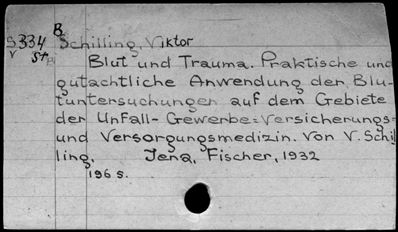 B
S334 Schilling, Viktor
V St
Blut und Trauma. Praktische und
gutachtliche Anwendung der Blu-
tuntersuchungen auf dem Gebiete
der Unfall- Gewerbe=Versicherungs=
und Versorgungsmedizin. Von V. Schil
ling. Jena, Fischer, 1932
196 S.